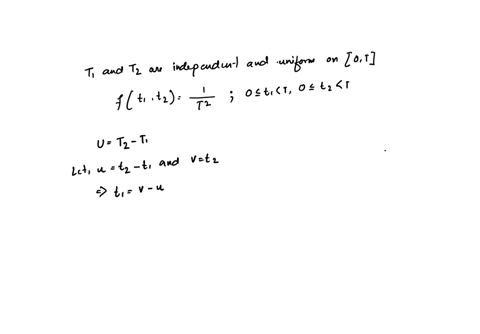 T₁ and T₂ are independent and uniform on [0,T]
f(t₁,t₂) = 1/T² ; 0≤t₁<T, 0≤t₂<T
U = T₂-T₁
Let, u = t₂-t₁ and v=t₂
⇒ t₁ = v-u